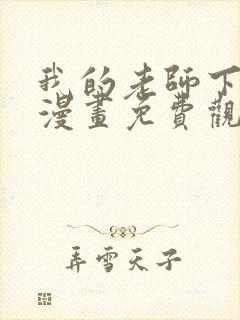 我的老師下
漫畫免費觀
弄雪天子